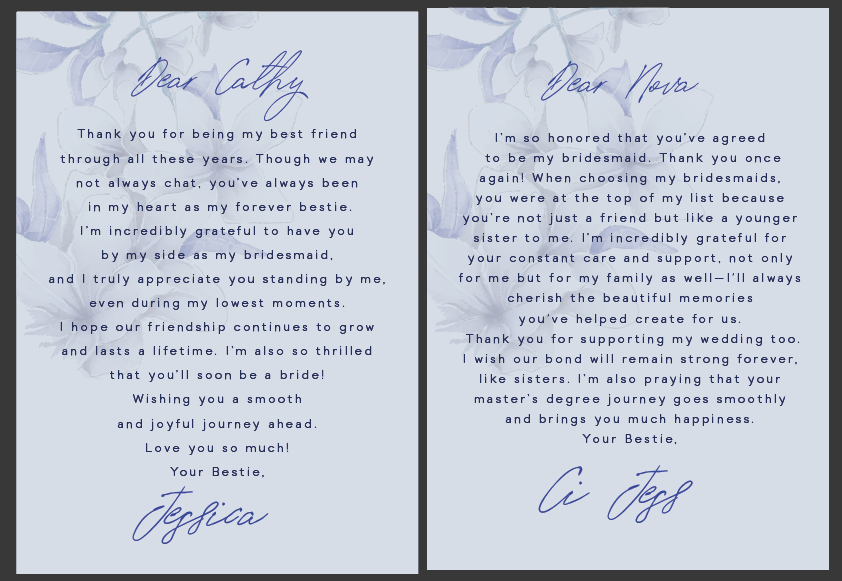 Dear Cathy
Thank you for being my best friend
through all these years. Though we may
not always chat, you've always been
in my heart as my forever bestie.
I'm incredibly grateful to have you
by my side as my bridesmaid,
and I truly appreciate you standing by me,
even during my lowest moments.
I hope our friendship continues to grow
and lasts a lifetime. I'm also so thrilled
that you'll soon be a bride!
Wishing you a smooth
and joyful journey ahead.
Love you so much!
Your Bestie,
Jessica
Dear Nova
I'm so honored that you've agreed
to be my bridesmaid. Thank you once
again! When choosing my bridesmaids,
you were at the top of my list because
you're not just a friend but like a younger
sister to me. I'm incredibly grateful for
your constant care and support, not only
for me but for my family as well—I'll always
cherish the beautiful memories
you've helped create for us.
Thank you for supporting my wedding too.
I wish our bond will remain strong forever,
like sisters. I'm also praying that your
master's degree journey goes smoothly
and brings you much happiness.
Your Bestie,
Ci Jess